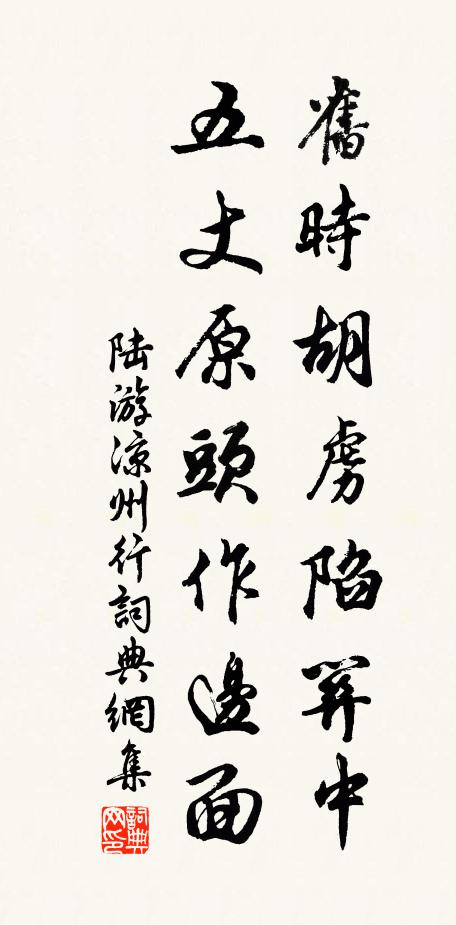 舊時胡虜陷關中
五丈原頭作邊面
陆游凉州行詞典網集
詞典网印